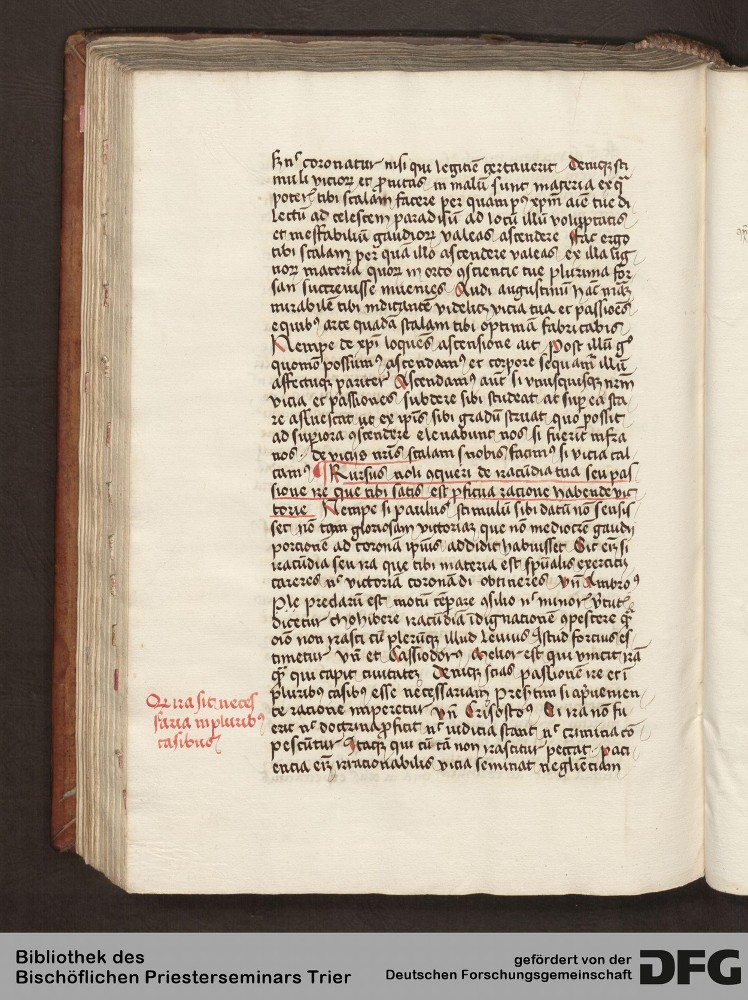 sed nec coronatur nisi qui legittime certaverit Denique sci
mu li vicior et pravitas in malū sunt materia ex qua
poteris tibi scalam facere per quam post xpm aīem tue di
lectū ad celestem paradisū ad locū illū voluptatis
et ineffabiliū gaudiorum valeas ascendere Fac ergo
tibi scalam per qua illo ascendere valeas ex illa lig
norum materia quorum in orto conscientie tue plurima for
san succrevisse invenies Audi augustinū hāc
mirabilē tibi indicantē videlicet vicia tua et passiōes
e quibus arte quadā scalam tibi optimā fabricabis
Nempe de xpi loquēs ascensione ait Post illū ergo
quomodo possumus ascendamus et corpore sequamur illū
affectuque pariter Ascendamus autē si unusquisque nrm
vicia et passiones subdere sibi studeat ac super ea sta
re assuescat ut ex ipis sibi gradū struat quo possit
ad superiora conscendere elevabunt nos si fuerīt infra
nos de viciis nris scalam nobis facimus si vicia cal
camus Rursus noli conqueri de iracūdia tua seu pas
sione ire que tibi satis est proficua racione habende vic
torie Nempe si paulus stimulū sibi datū nō sensis
set nō tam gloriosam victoriam que nō mediocrē gaudii
porcionē ad coronā ipius addidit habuisset Sic enim si
iracūdia seu ira que tibi materia est spūalis exercitii
careres nec victoria coronādi obtineres Vn Ambrosius
Ple preclarū est motū tēpare consilio nec minoris virtutis
dicetur chohibere iracūdiā īdignatione compescere quam
omīo non irasci cū plerūque illud levius istud forcius es
timetur Vn et Cassiodorus Melior est qui vincit irā
quam qui capit civitatem Denique scias passionē ire ei
pluribus casibus esse necessariam Presertim si a pvenien
te racione imperetur Vn Crisostomus Si ira nō fu
erit nec doctrina proficit nec iudicia stant nec crimina cō
pescūtur Itaque qui cū cā non irascitur peccat paci
encia enim irracionabilis vicia seminat negligēciam
Qr ira sit neces
saria in pluribus
casibus
Bibliothek des
Bischöflichen Priesterseminars Trier
gefördert von der
Deutschen Forschungsgemeinschaft
DFG